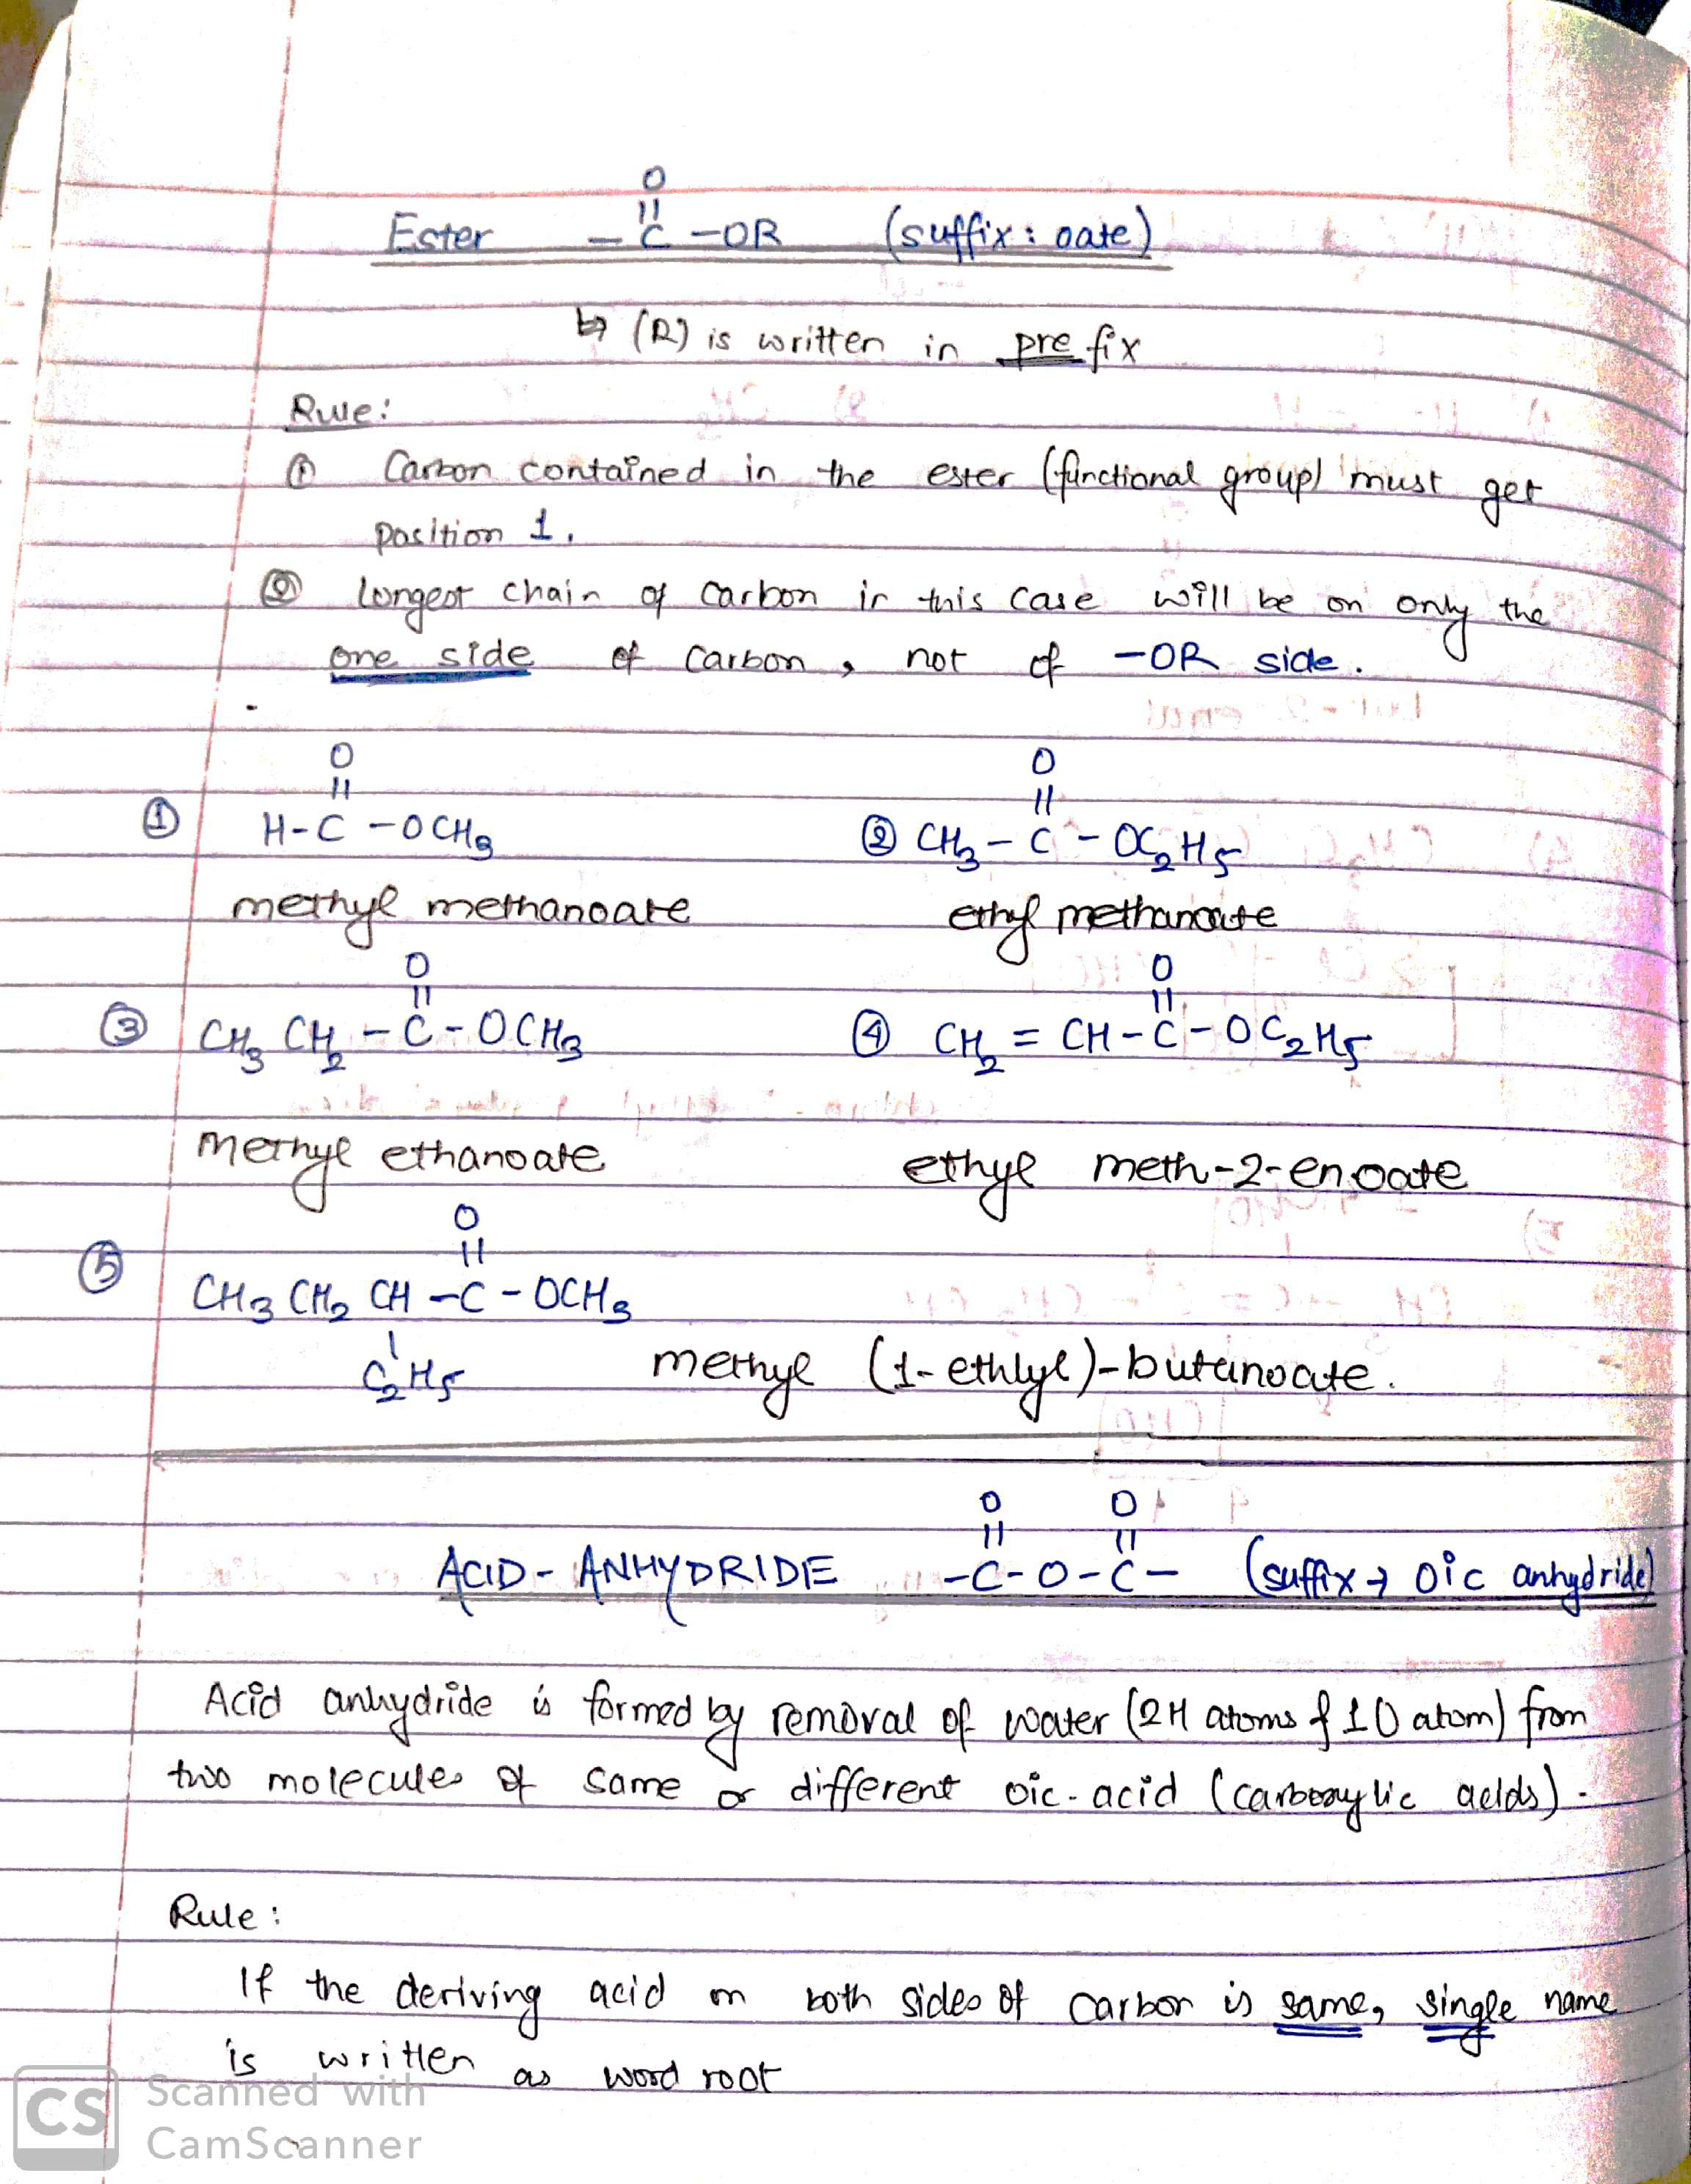 O
||
Ester – C – OR (suffix : oate)
↳ (R) is written in prefix
Rule:
① Carbon contained in the ester (functional group) must get
position 1.
② longest chain of carbon in this case will be on only the
one side of carbon, not of –OR side.
O
||
① H – C – OCH3
O
||
② CH3 – C – OC2H5
methyl methanoate
ethyl methanoate
O
||
③ CH3 CH2 – C – OCH3
O
||
④ CH2 = CH – C – OC2H5
methyl ethanoate
ethyl meth-2-enoate
O
||
⑤ CH3 CH2 CH – C – OCH3
|
C2H5
methyl (1-ethlyl)-butanoate.
O O
|| ||
ACID - ANHYDRIDE – C – O – C – (suffix → oic anhydride)
Acid anhydride is formed by removal of water (2H atoms & 1O atom) from
two molecules of same or different oic-acid (carboxylic acids).
Rule :
If the deriving acid on both sides of carbon is same, single name
is written as word root
CS Scanned with
CamScanner